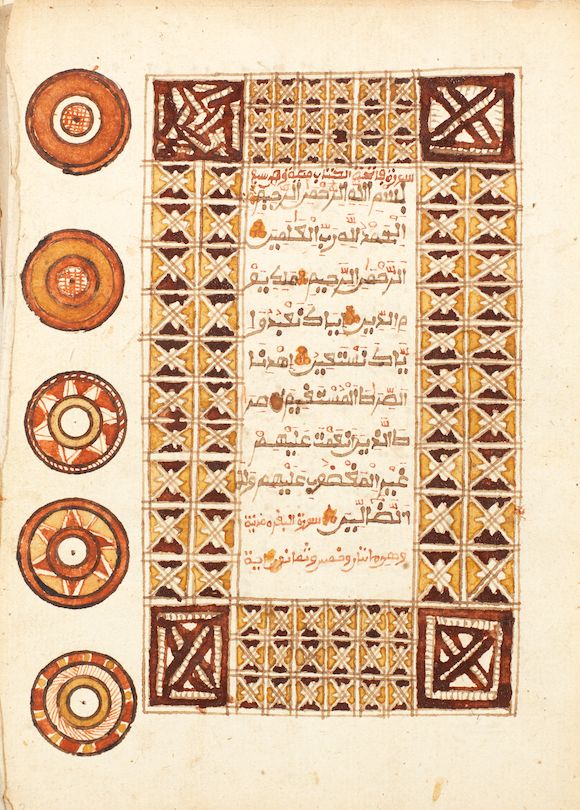 سورة فاتحة الكتاب مكية وهي سبع
بِسْمِ اللَّهِ الرَّحْمَٰنِ الرَّحِيمِ
الْحَمْدُ لِلَّهِ رَبِّ الْعَٰلَمِينَ
الرَّحْمَٰنِ الرَّحِيمِ مَلِكِ يَوْ
مِ الدِّينِ إِيَّاكَ نَعْبُدُ وَإِ
يَّاكَ نَسْتَعِينُ اهْدِنَا
الصِّرَٰطَ الْمُسْتَقِيمَ صِرَٰ
طَ الَّذِينَ أَنْعَمْتَ عَلَيْهِمْ
غَيْرِ الْمَغْضُوبِ عَلَيْهِمْ وَلَا
الضَّالِّينَ سورة البقرة مدنية
وهي مائتان وخمس وثمانون آية